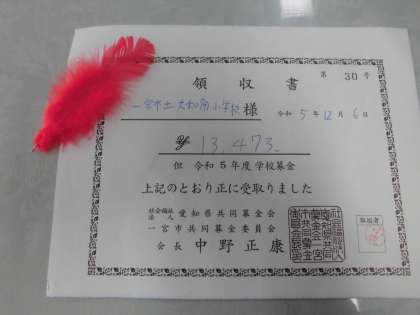 領収書
第 30 号
一宮市立大和南小学校 様
令和 5年 12月 6日
¥ 13,473.
但 令和5年度学校募金
上記のとおり正に受取りました
社会福祉法人 愛知県共同募金会
一宮市共同募金委員会
会長 中野正康
取扱者